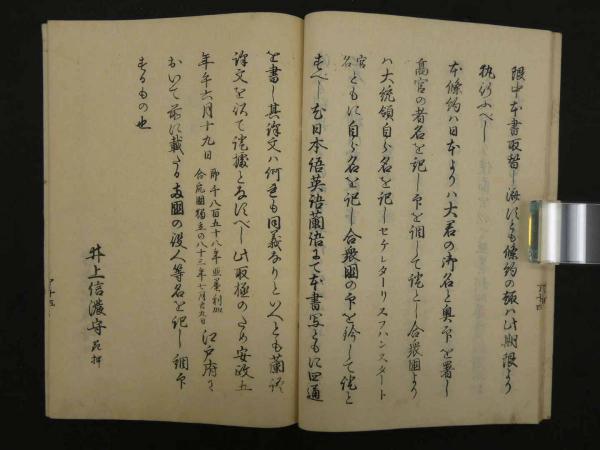 限中本書取替し済すとも條約の趣ハ此期限より
執行ふへし
本條約ハ日本よりハ大君の御名と奥印を署し
高官の者名を記し印を調して証とし合衆國より
ハ大統領自ら名を記しセケレターリスフハンスタート
官名ともに自ら名を記し合衆國の印を鈐して証と
すへし尤日本語英語蘭語にて本書写ともに四通
を書し其譯文ハ何連も同義なりといへとも蘭語
譯文を以て証據となすへし此取極のため安政五
年午六月十九日 即千八百五十八年亜墨利加合衆國獨立の八十三年七月廿九日 江戸府に
おいて前に載たる両國の役人等名を記し調印
するもの也
井上信濃守 花押